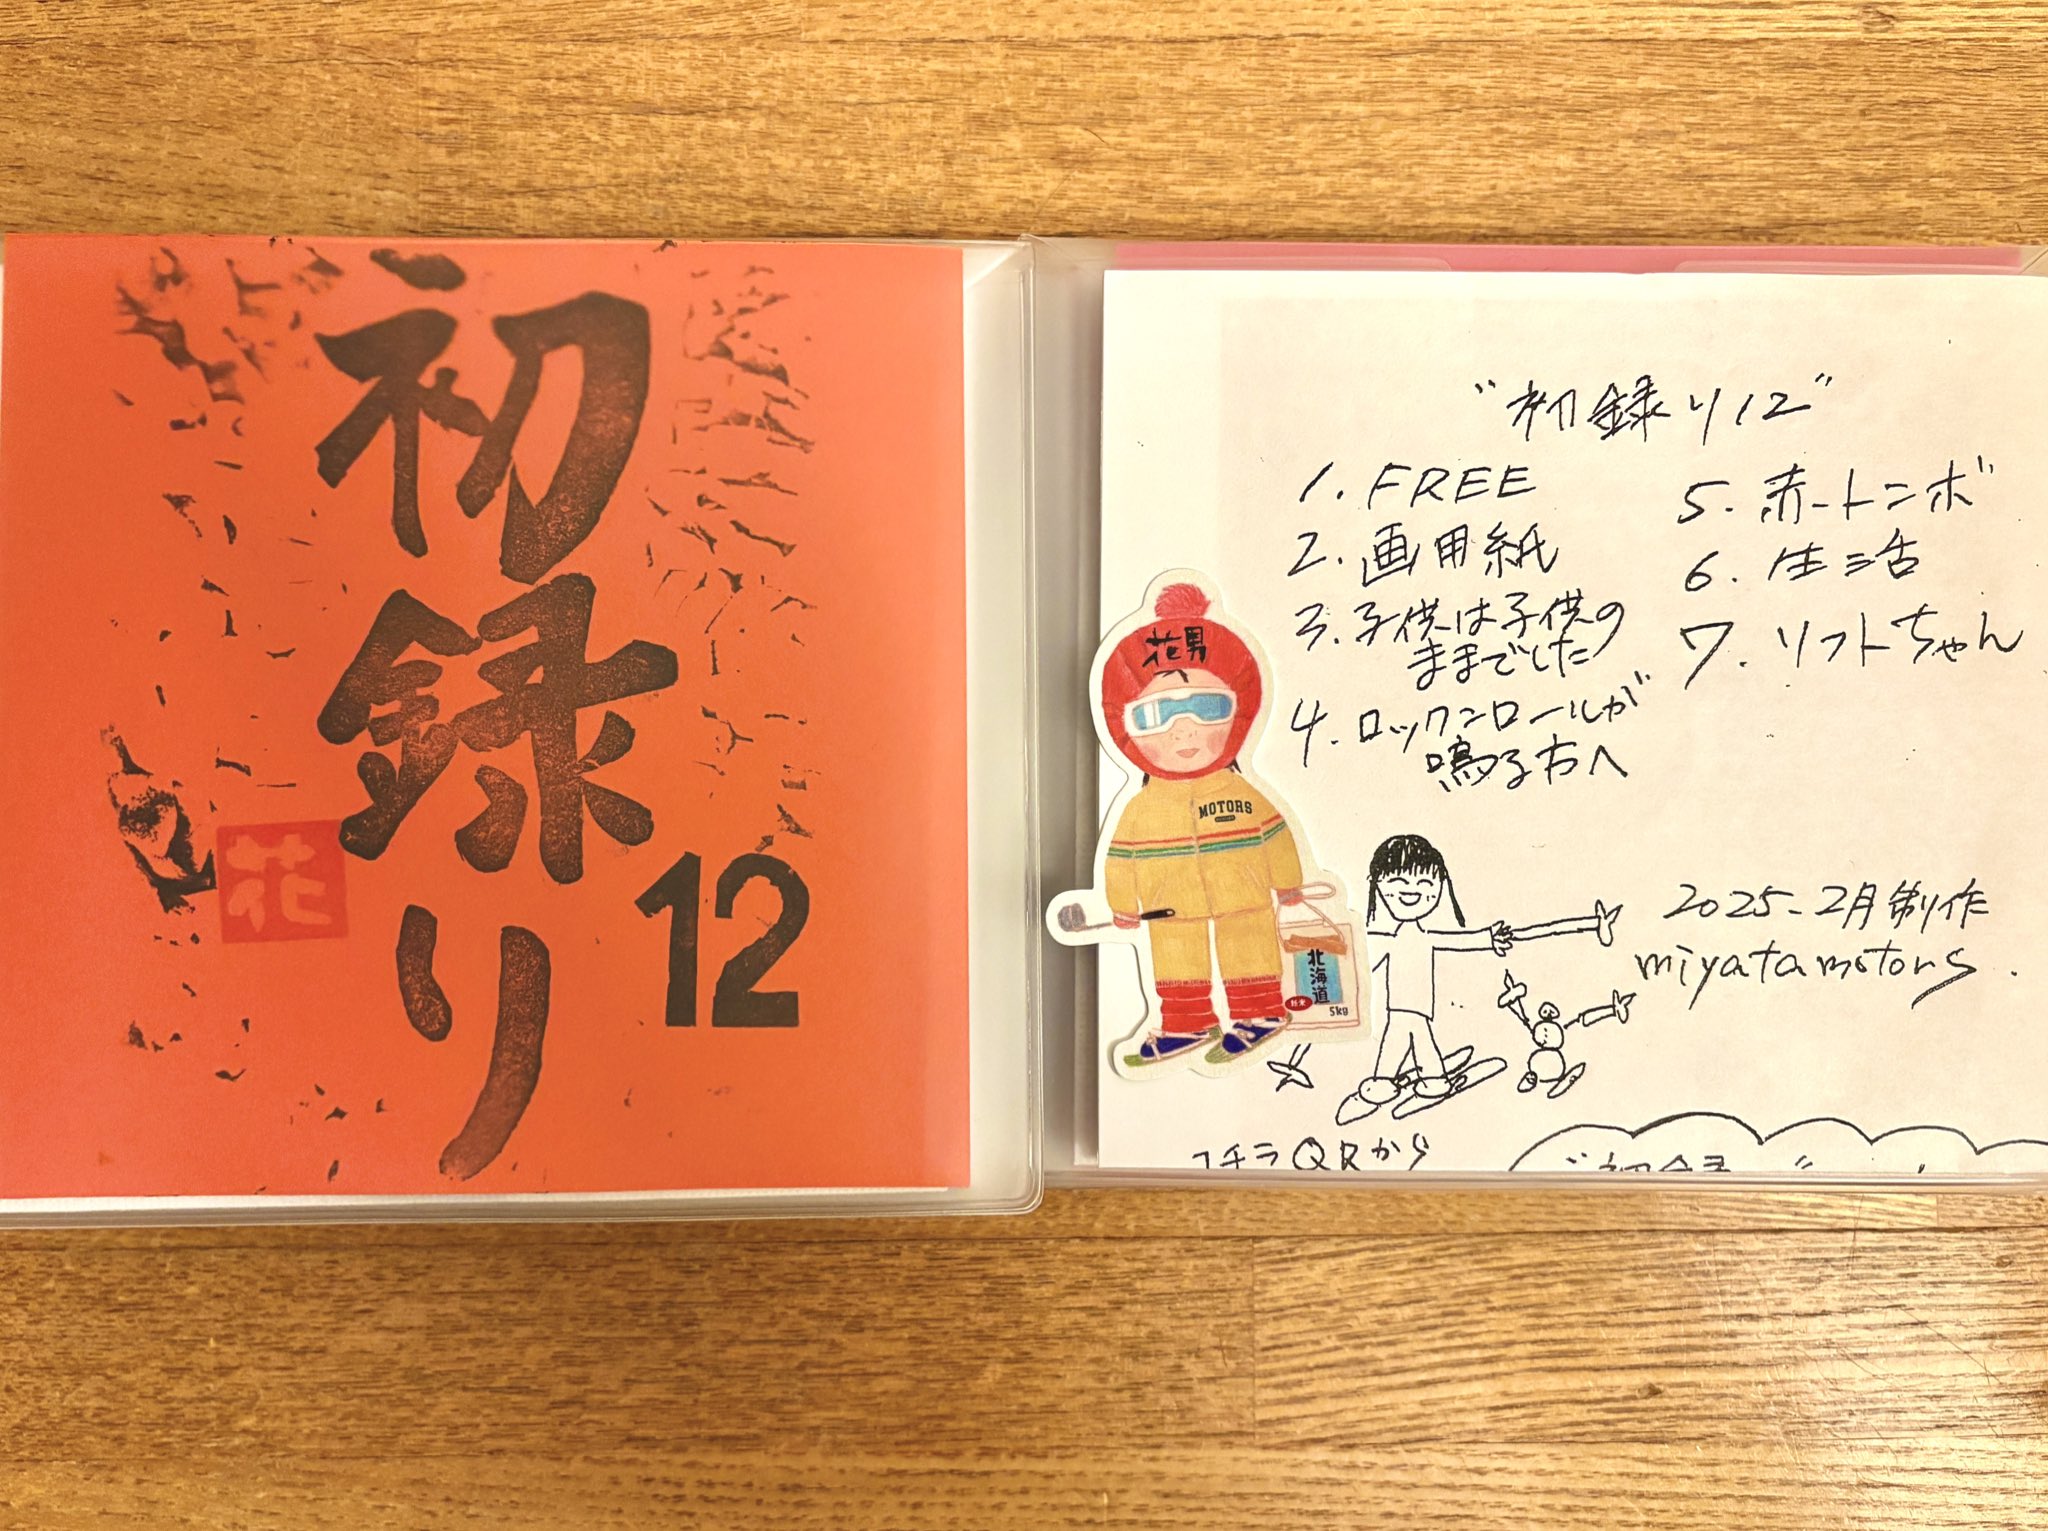 初録り
12
花
"初録り12"
1. FREE
2. 画用紙
3. 子供は子供の
ままでした
4. ロックンロールが
鳴る方へ
5. 赤トンボ
6. 生活
7. リフトちゃん
花男
MOTORS
北海道
新米
5kg
2025.2月制作
miyatamotors.
コチラQRから
"初録